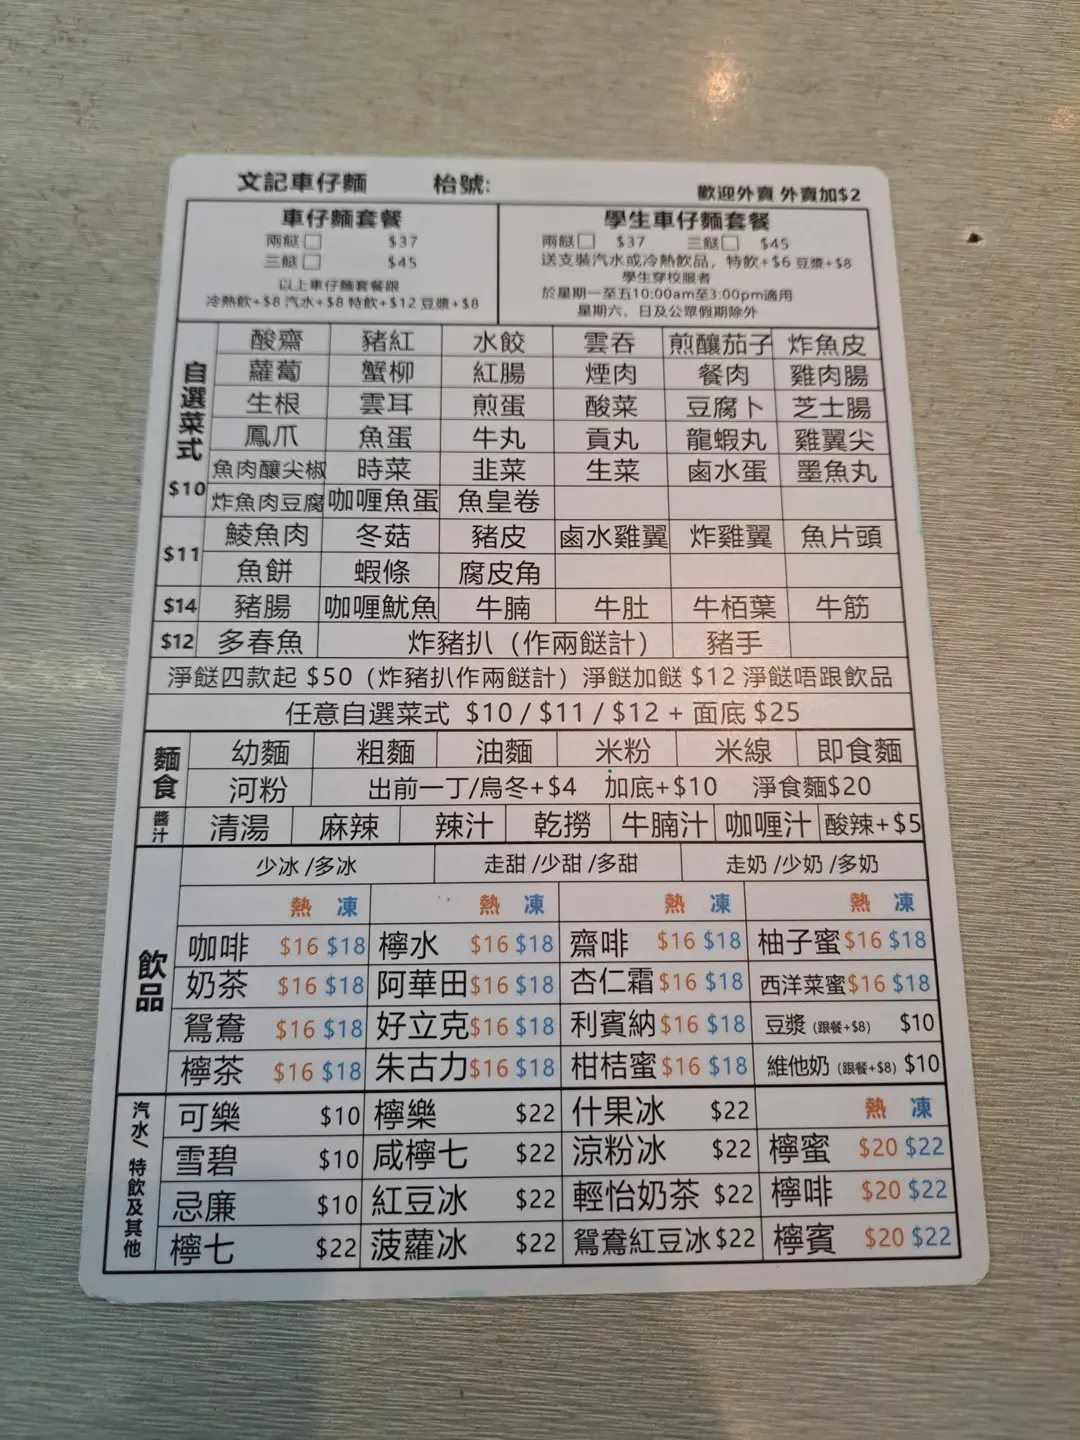 文記車仔麵 枱號: 歡迎外賣 外賣加$2
車仔麵套餐
兩餸□ $37
三餸□ $45
以上車仔麵套餐跟
冷熱飲+$8 汽水+$8 特飲+$12 豆漿+$8
學生車仔麵套餐
兩餸□ $37 三餸□ $45
送支裝汽水或冷熱飲品，特飲+$6 豆漿+$8
學生穿校服者
於星期一至五10:00am至3:00pm適用
星期六、日及公眾假期除外
自選菜式
$10
酸齋 豬紅 水餃 雲吞 煎釀茄子 炸魚皮
蘿蔔 蟹柳 紅腸 煙肉 餐肉 雞肉腸
生根 雲耳 煎蛋 酸菜 豆腐卜 芝士腸
鳳爪 魚蛋 牛丸 貢丸 龍蝦丸 雞翼尖
魚肉釀尖椒 時菜 韭菜 生菜 鹵水蛋 墨魚丸
炸魚肉豆腐 咖喱魚蛋 魚皇卷
$11
鯪魚肉 冬菇 豬皮 鹵水雞翼 炸雞翼 魚片頭
魚餅 蝦條 腐皮角
$14 豬腸 咖喱魷魚 牛腩 牛肚 牛栢葉 牛筋
$12 多春魚 炸豬扒（作兩餸計） 豬手
淨餸四款起 $50（炸豬扒作兩餸計）淨餸加餸 $12 淨餸唔跟飲品
任意自選菜式 $10 / $11 / $12 + 面底 $25
麵食
幼麵 粗麵 油麵 米粉 米線 即食麵
河粉 出前一丁/烏冬+$4 加底+$10 淨食麵$20
醬汁
清湯 麻辣 辣汁 乾撈 牛腩汁 咖喱汁 酸辣+$5
飲品
少冰 /多冰 走甜 /少甜 /多甜 走奶 /少奶 /多奶
熱 凍 熱 凍 熱 凍 熱 凍
咖啡 $16 $18 檸水 $16 $18 齋啡 $16 $18 柚子蜜 $16 $18
奶茶 $16 $18 阿華田 $16 $18 杏仁霜 $16 $18 西洋菜蜜 $16 $18
鴛鴦 $16 $18 好立克 $16 $18 利賓納 $16 $18 豆漿 (跟餐+$8) $10
檸茶 $16 $18 朱古力 $16 $18 柑桔蜜 $16 $18 維他奶 (跟餐+$8) $10
汽水/ 特飲及其他
可樂 $10 檸樂 $22 什果冰 $22 熱 凍
雪碧 $10 咸檸七 $22 涼粉冰 $22 檸蜜 $20 $22
忌廉 $10 紅豆冰 $22 輕怡奶茶 $22 檸啡 $20 $22
檸七 $22 菠蘿冰 $22 鴛鴦紅豆冰 $22 檸賓 $20 $22